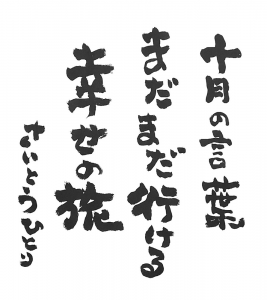 十月の言葉
まだまだ行ける
幸せの旅
さいとうひとり